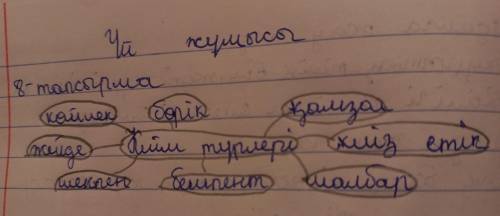 Үй жумысы
8-тапсырма
көйлек бөрік қамзол
жейде Киім турлері киіз етік
шекпен бешпент шалбар